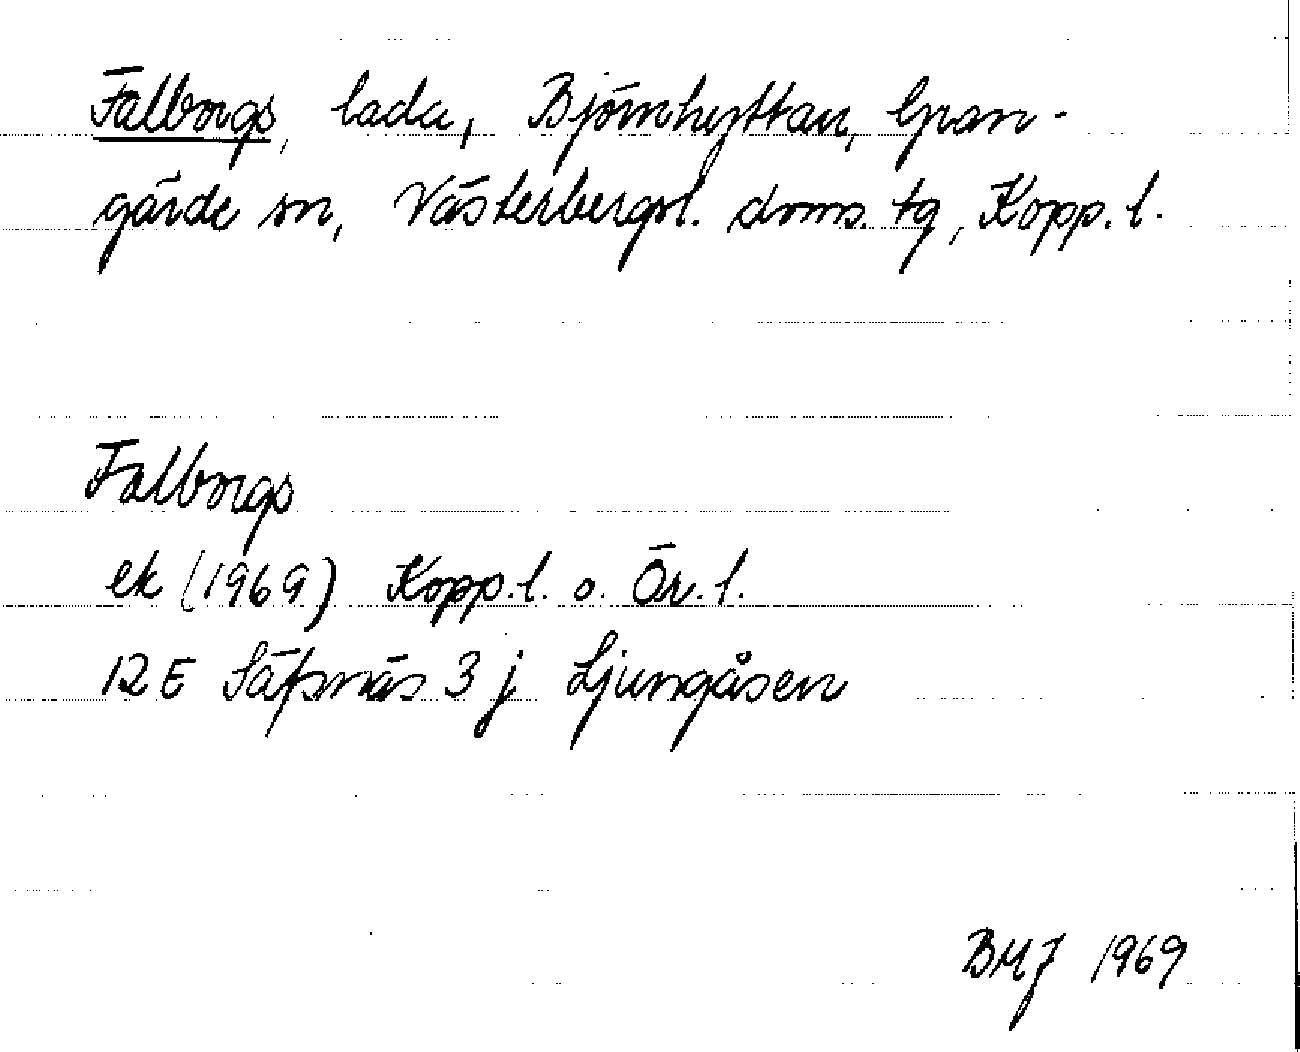 Falborgs, lada, Björnhyttan, Gran-
gärde sn, Västerbergsl. doms. tg, Kopp. l.
Falborgs
ek (1969) Kopp. l. o. Ör. l.
12E Säfsnäs 3 j Ljungåsen
BMJ 1969